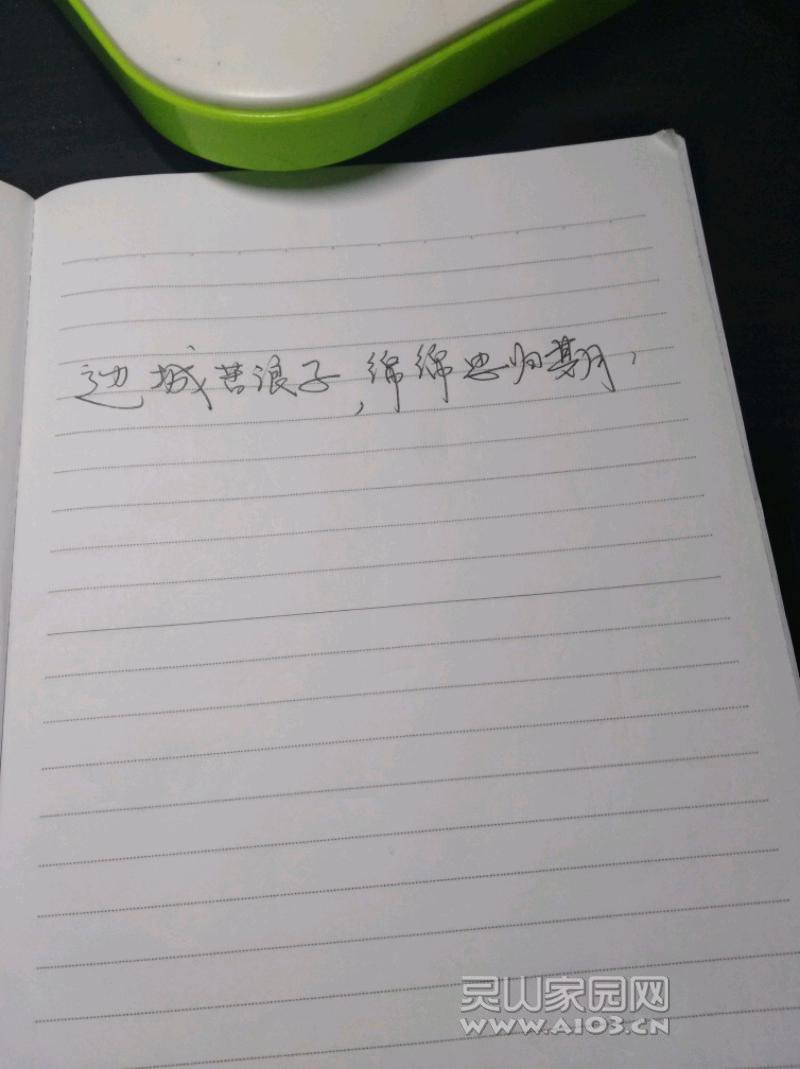 边城苦浪子，绵绵思归期，
灵山家园网
www.A103.CN